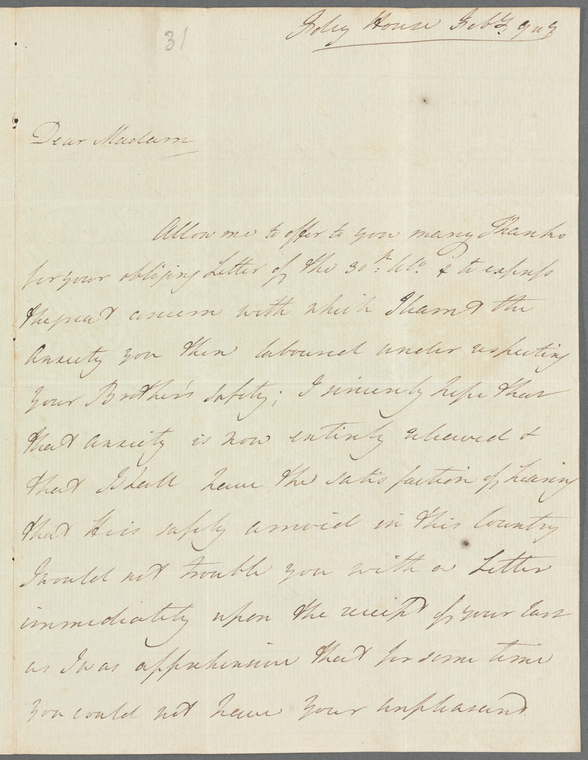 31
Foley House Feb.y 9th
Dear Madam
Allow me to offer to you many Thanks
for your obliging Letter of the 30th. Ulto. & to express
the great concern with which I learnt the
Anxiety you then laboured under respecting
your Brother's safety; I sincerely hope that
that anxiety is now entirely relieved &
that I shall have the satisfaction of hearing
that He is safely arrived in this Country
I would not trouble you with a Letter
immediately upon the receipt of your last
as I was apprehensive that for some time
you could not have your unpleasant